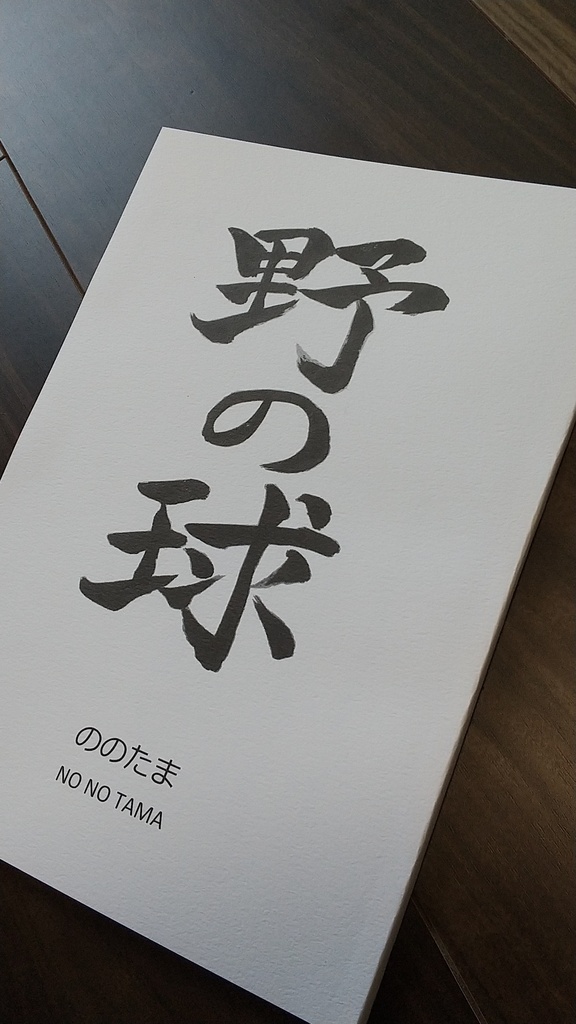 野の球
ののたま
NO NO TAMA